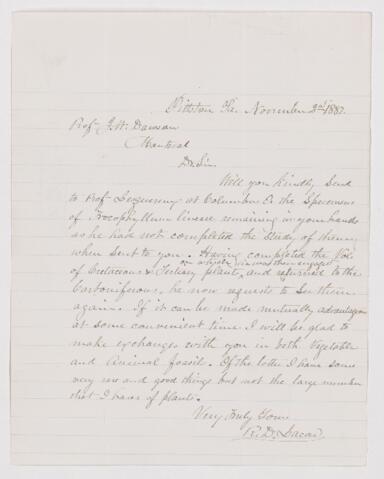 Pittston Pa. November 2nd 1882.
Prof. J. W. Dawson
Montreal
Dr Sir.
Will you kindly Send
to Prof Lesquereux at Columbus O. the Specimens
of linear remaining in your hands
as he had not completed the Study of them
when Sent to you. Having completed the Vol.
on which he was then engaged
of Cretaceous & Tertiary plants, and returned to the
Carboniferous, he now requests to See them
again. If it can be made mutually advantageous
at some convenient time I will be glad to
make exchanges with you in both Vegetable
and Animal fossils. Of the latter I have some
very rare and good things but not the large number
that I have of plants.
Very Truly Yours
R. D. Lacoe